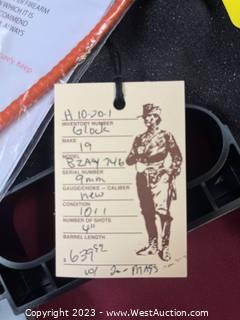 OF FIREARM
COMMEND
ALWAYS
H 10-20-1
INVENTORY NUMBER
Glock
MAKE
19
MODEL
BZAY 746
SERIAL NUMBER
9mm
GAUGE/CHOKE - CALIBER
new
CONDITION
10+1
NUMBER OF SHOTS
4"
BARREL LENGTH
$ 639 99
w/ 2- MAGS
Copyright © 2023 - www.WestAuction.com